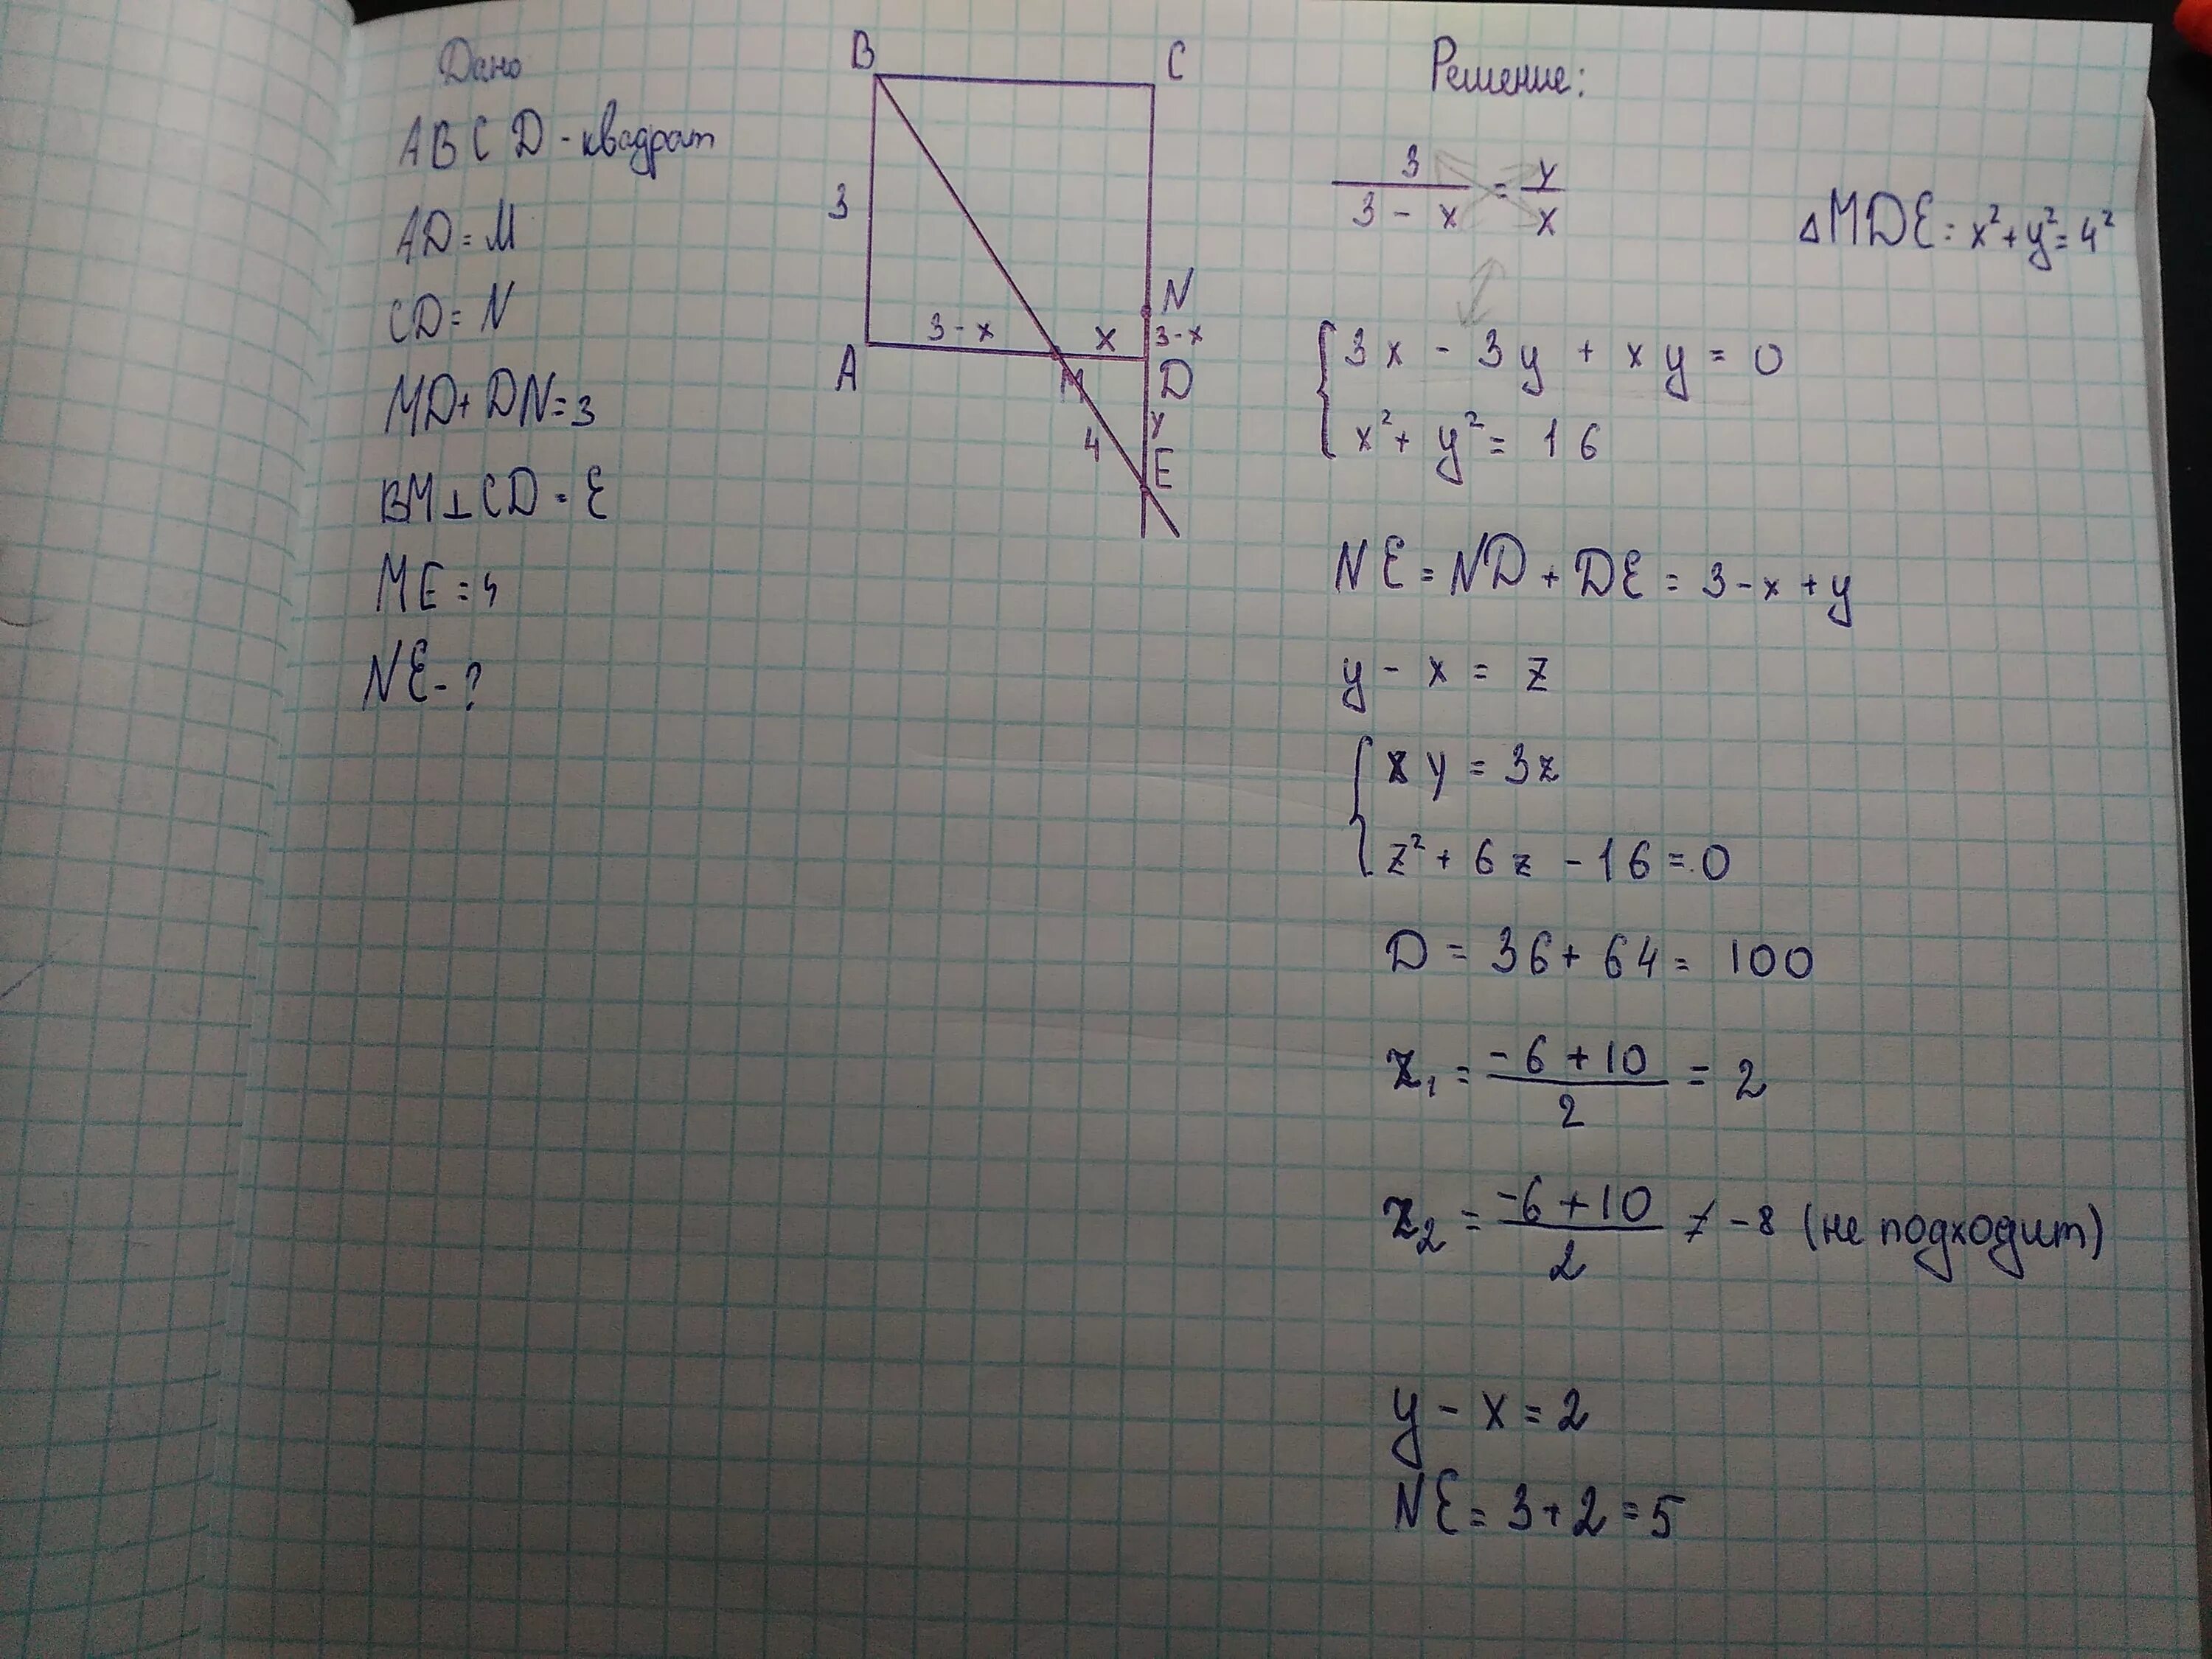 Дано
ABCD - квадрат
AD = M
CD = N
MD + DN = 3
BM ⊥ CD = E
ME = 4
NE - ?
B
C
3
N
3 - x
x
3 - x
A
M
D
y
4
E
Решение:
3 / (3 - x) = y / x
△MDE = x² + y² = 4²
{ 3x - 3y + xy = 0
x² + y² = 16
NE = ND + DE = 3 - x + y
y - x = z
{ xy = 3z
z² + 6z - 16 = 0
D = 36 + 64 = 100
z₁ = (-6 + 10) / 2 = 2
z₂ = (-6 + 10) / 2 ≠ -8 (не подходит)
y - x = 2
NE = 3 + 2 = 5